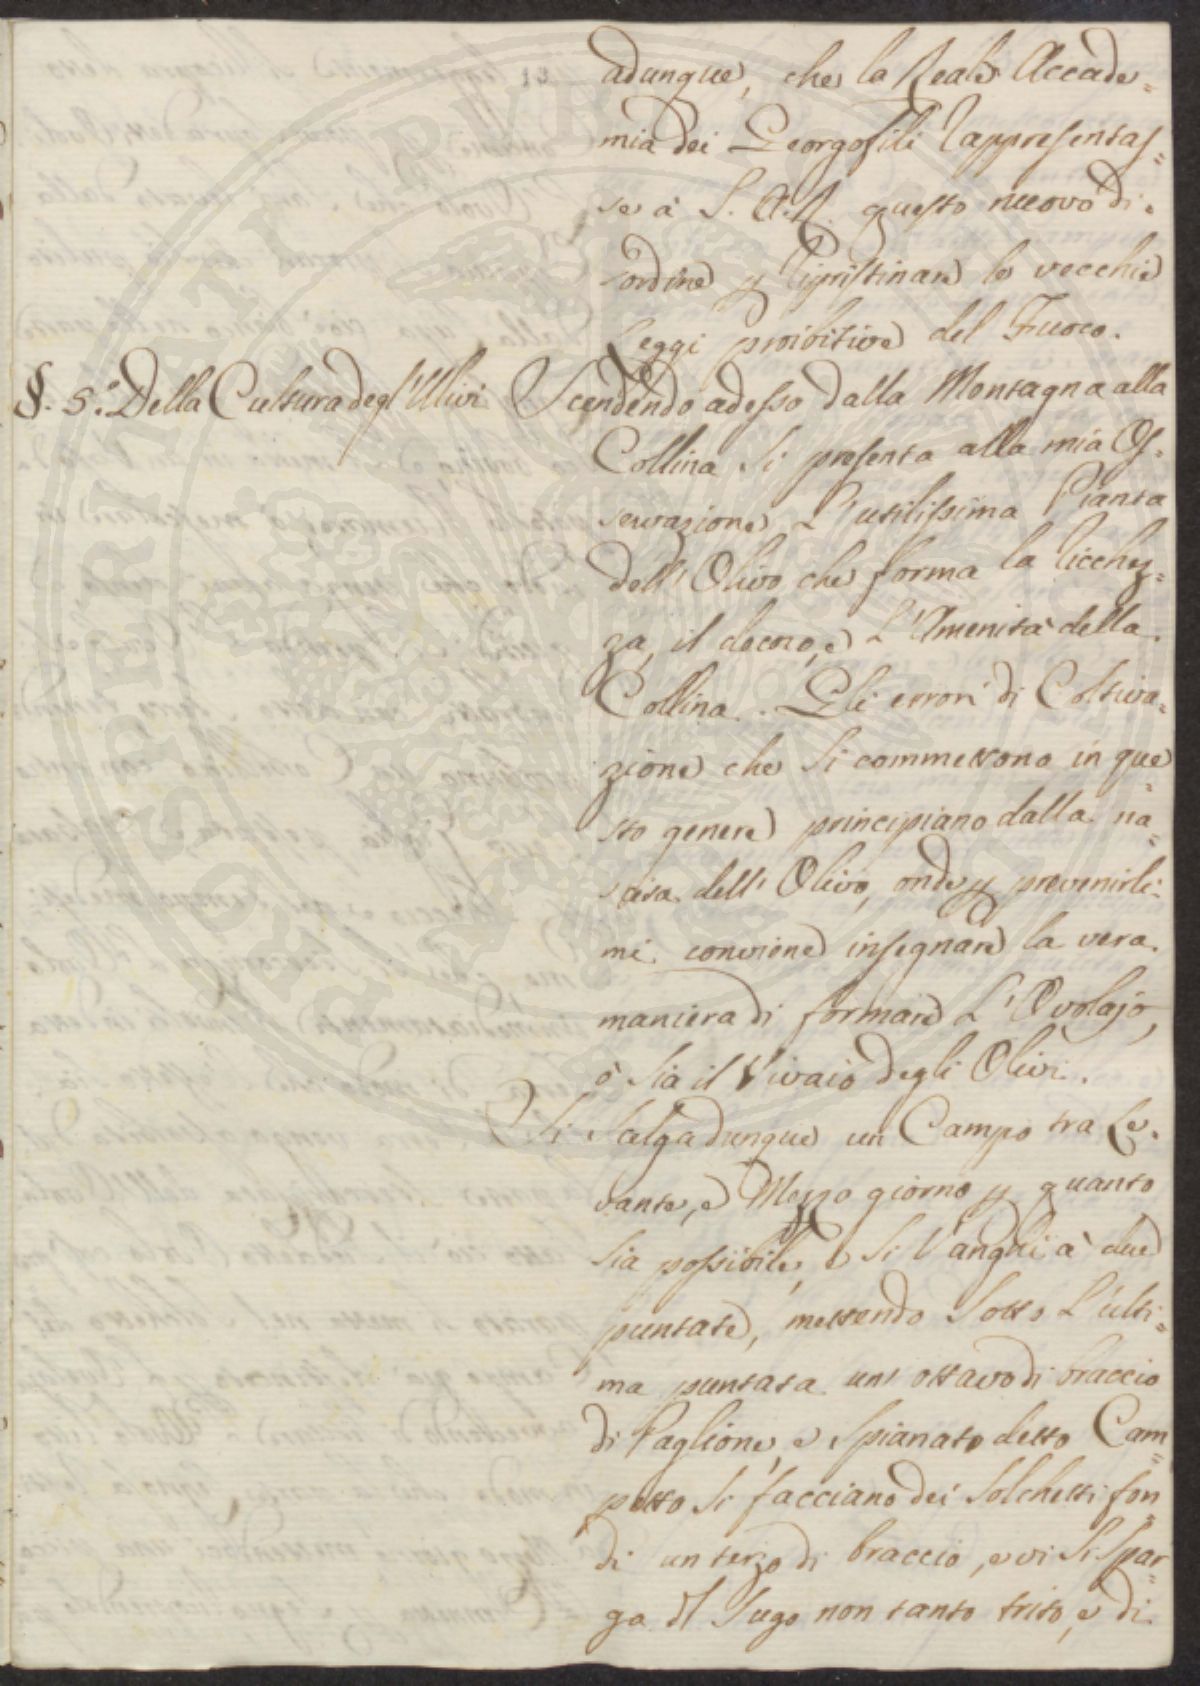 adunque, che la Reale Accade=
mia dei Georgofili rappresentas=
se à S. A. R. questo nuovo di=
sordine p ripristinare le vecchie
Leggi proibitive del Fuoco.
§. 5.° Della Cultura degl'Ulivi Scendendo adesso dalla Montagna alla
Collina si presenta alla mia Os=
servazione L'utilissima Pianta
dell'Olivo che forma la ricchez=
za, il decoro, e L'Amenità della
Collina. Gli errori di Coltiva=
zione che si commettono in que=
sto genere principiano dalla na=
scita dell'Olivo, onde p prevenirli
mi conviene insegnare la vera
maniera di formare L'Ovolajo,
ò sia il Vivaio degli Olivi.
Si Scelga dunque un Campo tra Le=
vante, e Mezzo giorno p quanto
sia possibile, e si Vanghi à due
puntate, mettendo sotto L'ulti=
ma puntata un'ottavo di braccio
di Paglione, e spianato detto Cam=
petto si facciano dei Solchetti fon=
di un terzo di braccio, e vi si spar=
ga il Sugo non tanto trito, e di